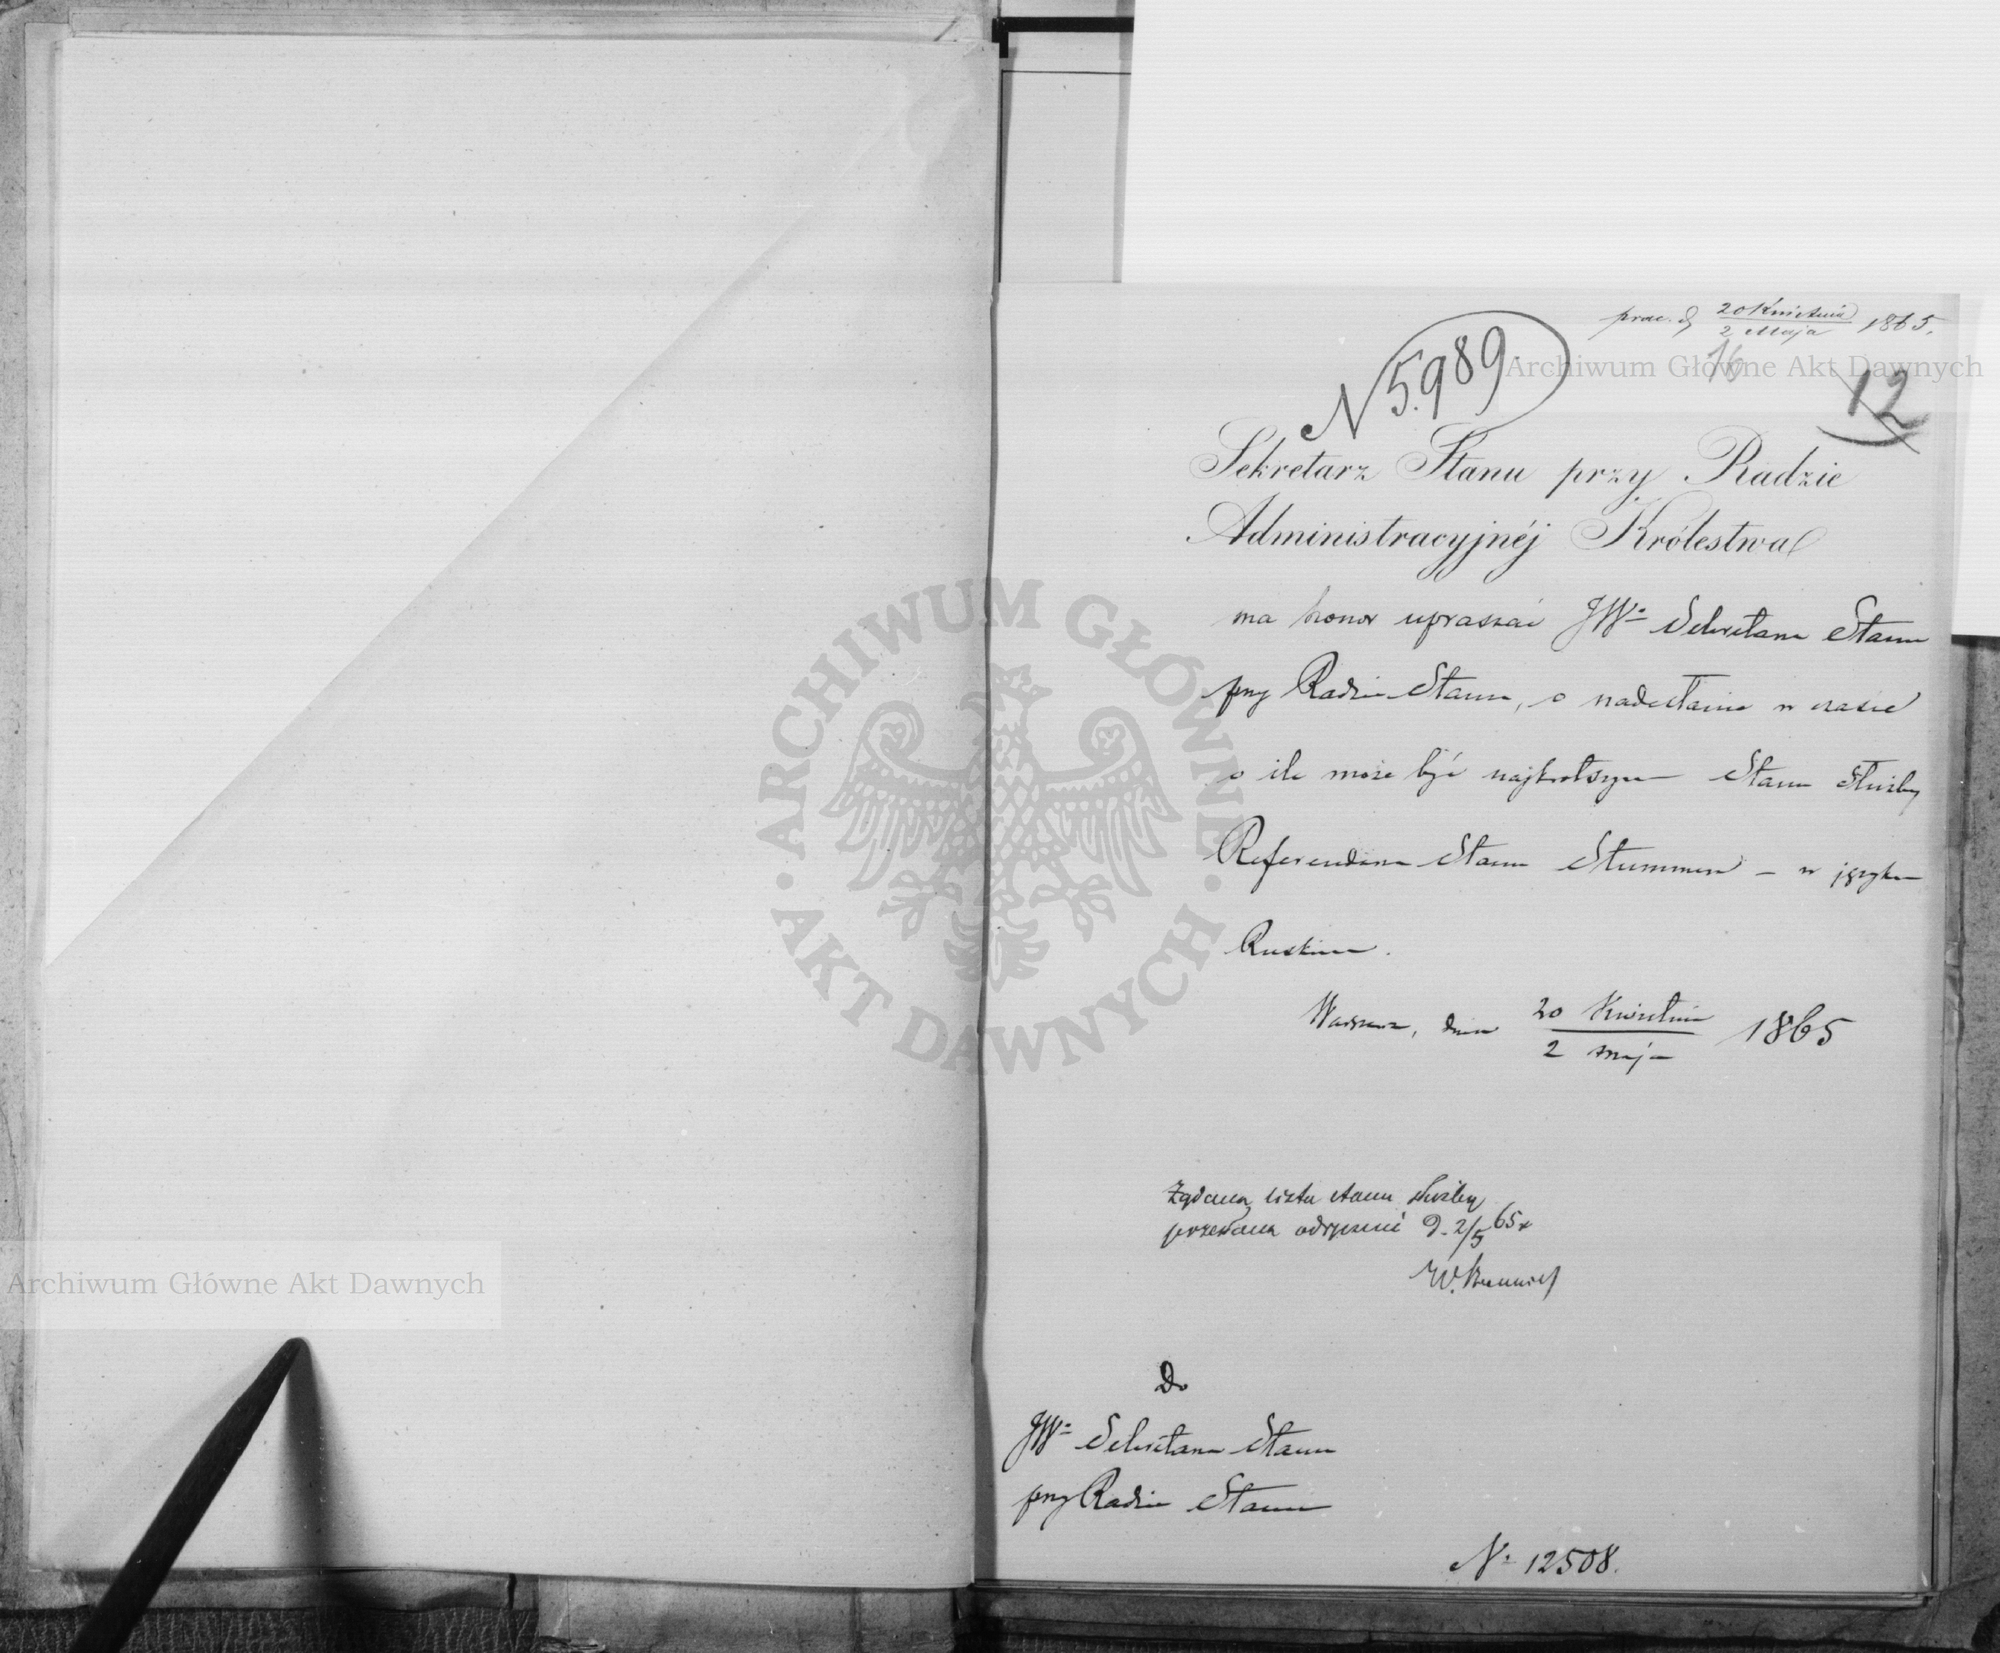 prae. d. 20 Kwietnia / 2 Maja 1865.
N 5989.
16
12
Sekretarz Stanu przy Radzie
Administracyjnéj Królestwa
ma honor upraszać JW. Sekretarza Stanu
przy Radzie Stanu, o nadesłanie w czasie
o ile może być najkrótszym Stanu służby
Referendarza Stanu Stummera – w języku
Ruskim.
Warszawa, dnia 20 Kwietnia / 2 maja 1865
Żądana lista stanu służby
przesłana odręcznie d. 2/5 65 r
W.
Do
JW. Sekretarza Stanu
przy Radzie Stanu
N. 12508.
Archiwum Główne Akt Dawnych
Archiwum Główne Akt Dawnych
ARCHIWUM GŁÓWNE
AKT DAWNYCH